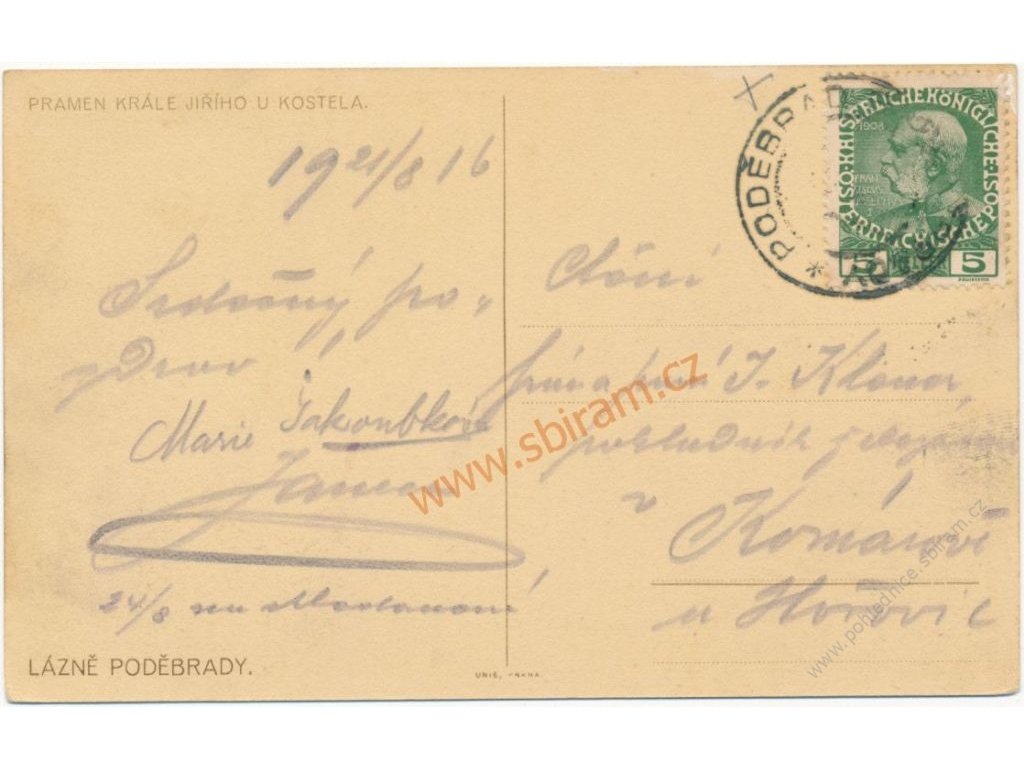 PRAMEN KRÁLE JIŘÍHO U KOSTELA.
19 21/8 16
Srdečný po-
zdrav
Marie Jakoubková
24/8
LÁZNĚ PODĚBRADY.
UNIE, PRAHA.
* PODĚBRADY
KAISERLICHE KÖNIGLICHE
ÖSTERREICHISCHE POST
1908
5 HELLER 5
Ctění
pán a paní J. Klener
pokladník
v Komárově
u Hořovic
www.sbiram.cz
www.pohlednice.sbiram.cz